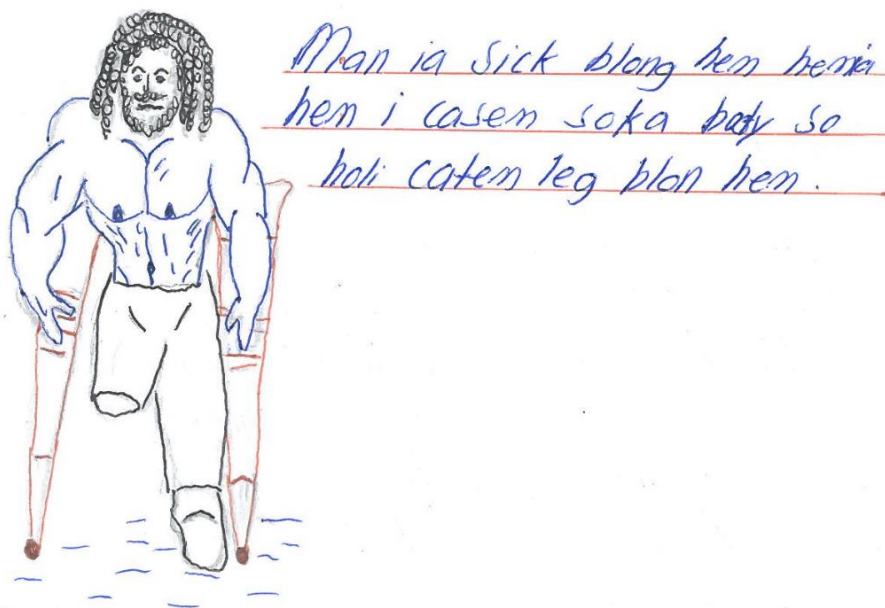 Man ia sick blong hem hemia
hem i casem soka body so
holi catem leg blon hem.